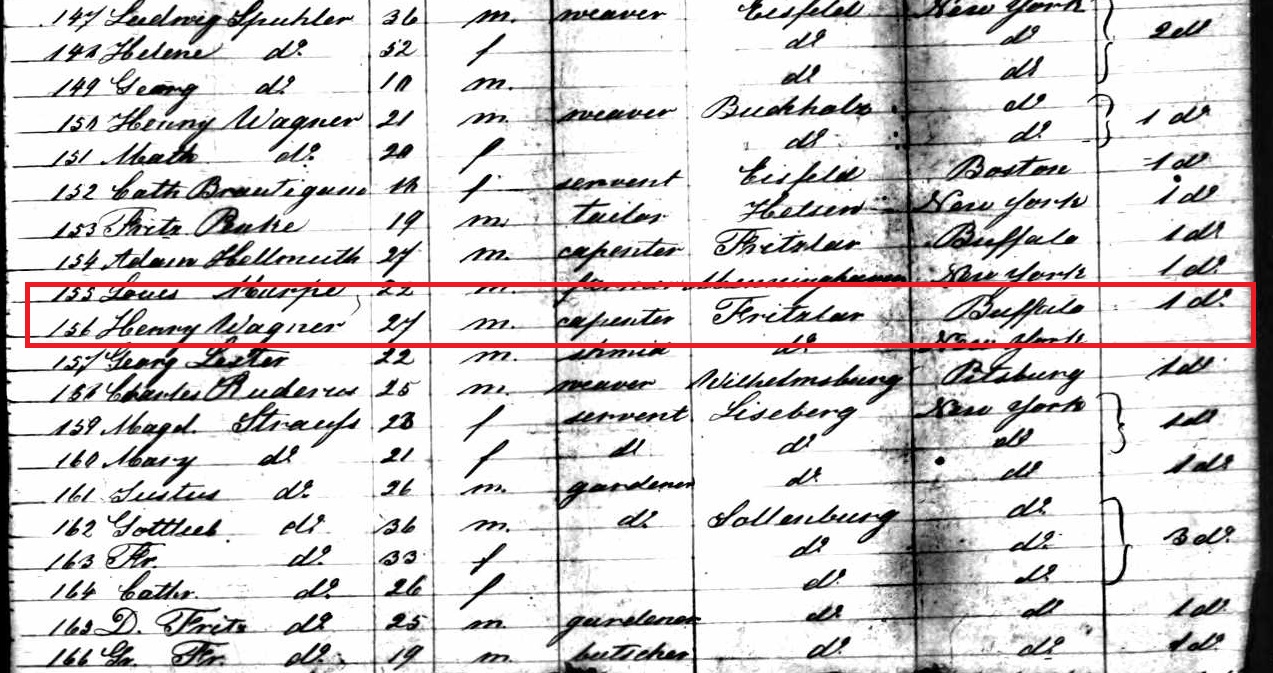 147 Ludwig Spuhler 36 m. weaver Eisfeld New York
148 Helene do. 52 f do. do. 2 do
149 Georg do. 10 m. do. do.
150 Henny Wagner 21 m. weaver Buchholz do.
151 Math do. 20 f do. do. 1 do
152 Cath Brautigam 18 f servent Eisfeld Boston 1 do
153 Fritz Bake 19 m. tailor Helsen New York 1 do
154 Adam Hellmuth 27 m. capenter Fritzlar Buffalo 1 do
155 Loues 22 m. New York 1 do.
156 Henry Wagner 27 m. capenter Fritzlar Buffalo 1 do.
157 Georg Lester 22 m. shmid do. New York
158 Charles Ruderus 25 m. weaver Wilhelmsburg Pitsburg 1 do
159 Magd. Straufs 23 f servent Liseberg New York
160 Mary do. 21 f do do do 1 do
161 Justus do. 26 m. gardener do. do 1 do.
162 Gottlieb do. 36 m. do. Sollenburg do.
163 Fr. do. 33 f do. do. 3 do.
164 Cathr. do. 26 f do. do.
165 D. Fritz do. 25 m. gardener do. do 1 do.
166 Gr. Fr. do. 19 m. butscher do. do. 1 do